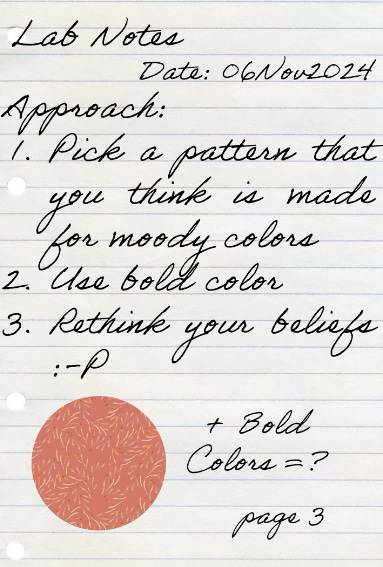 Lab Notes
Date: 06Nov2024
Approach:
1. Pick a pattern that
you think is made
for moody colors
2. Use bold color
3. Rethink your beliefs
:-P
+ Bold
Colors = ?
page 3